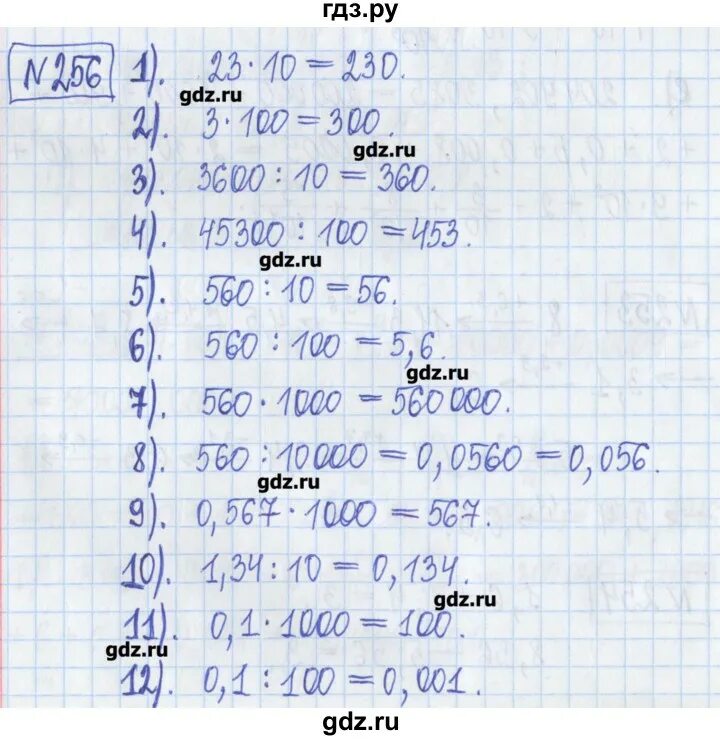 гдз.ру
N256 1). 23 · 10 = 230.
gdz.ru
2). 3 · 100 = 300.
gdz.ru
3). 3600 : 10 = 360.
4). 45300 : 100 = 453.
gdz.ru
5). 560 : 10 = 56.
6). 560 : 100 = 5,6.
gdz.ru
7). 560 · 1000 = 560 000.
8). 560 : 10000 = 0,0560 = 0,056.
gdz.ru
9). 0,567 · 1000 = 567.
10). 1,34 : 10 = 0,134.
gdz.ru
11). 0,1 · 1000 = 100.
gdz.ru
12). 0,1 : 100 = 0,001.
gdz.ru